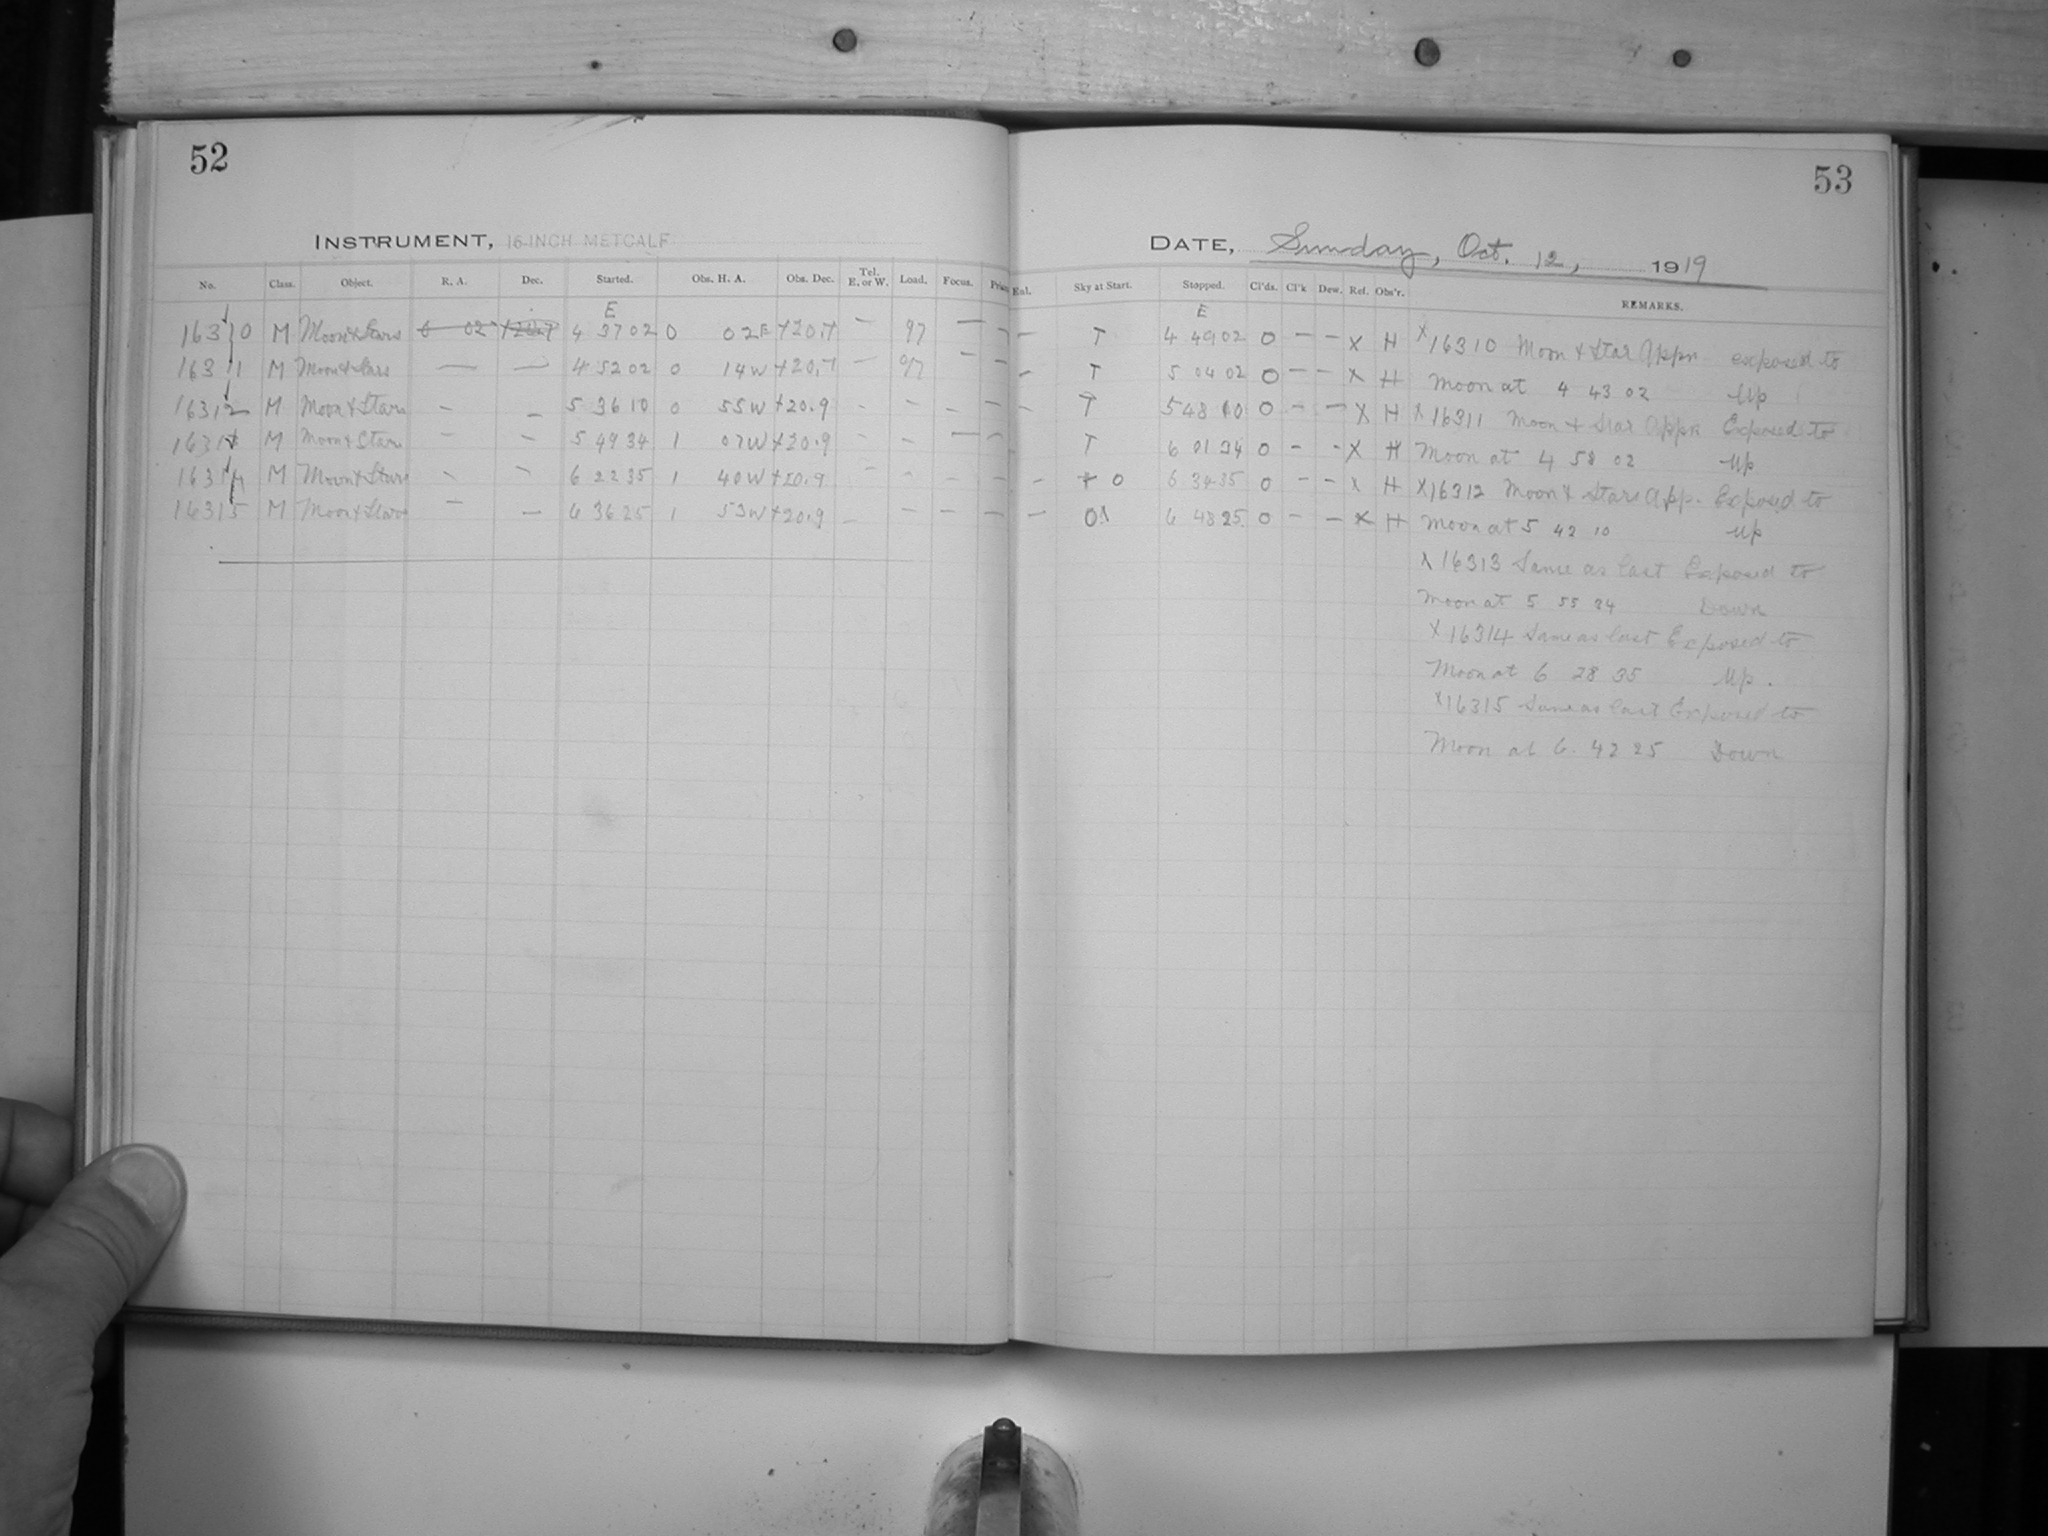 52
53
INSTRUMENT, 16-INCH METCALF
DATE, Sunday, Oct. 12, 1919
No. Class. Object. R. A. Dec. Started. Obs. H. A. Obs. Dec. Tel. E. or W. Load. Focus. Enl. Sky at Start. Stopped. Cl'ds. Cl'k Dew. Ref. Obs'r. REMARKS.
E E
16310 M Moon & Stars 6 02 +20.7 4 37 02 0 02 E +20.7 — 97 — — — T 4 49 02 0 — — X H
16311 M Moon & Stars — — 4 52 02 0 14 W +20.7 — 97 — — — T 5 04 02 0 — — X H
16312 M Moon & Stars — — 5 36 10 0 55 W +20.9 - - - - - T 5 48 10 0 - - X H
16313 M Moon & Stars — — 5 49 34 1 07 W +20.9 - - — - T 6 01 34 0 - - X H
16314 M Moon & Stars - - 6 22 35 1 40 W +20.9 - - - - - 0 6 34 35 0 - - X H
16315 M Moon & Stars — — 6 36 25 1 53 W +20.9 - - - - - 6 48 25 0 - - X H
X 16310 Moon & Star Appn. exposed to
Moon at 4 43 02 Up
X 16311 Moon & Star Appn Exposed to
Moon at 4 58 02 Up
X 16312 Moon & Stars App. Exposed to
Moon at 5 42 10 Up
X 16313 Same as last Exposed to
Moon at 5 55 34 Down
X 16314 Same as last Exposed to
Moon at 6 28 35 Up.
X 16315 Same as last Exposed to
Moon at 6 42 25 Down